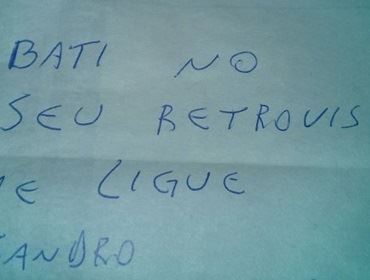 BATI NO
SEU RETROVIS
ME LIGUE
SANDRO